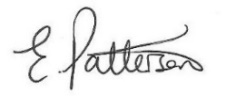 E Patterson